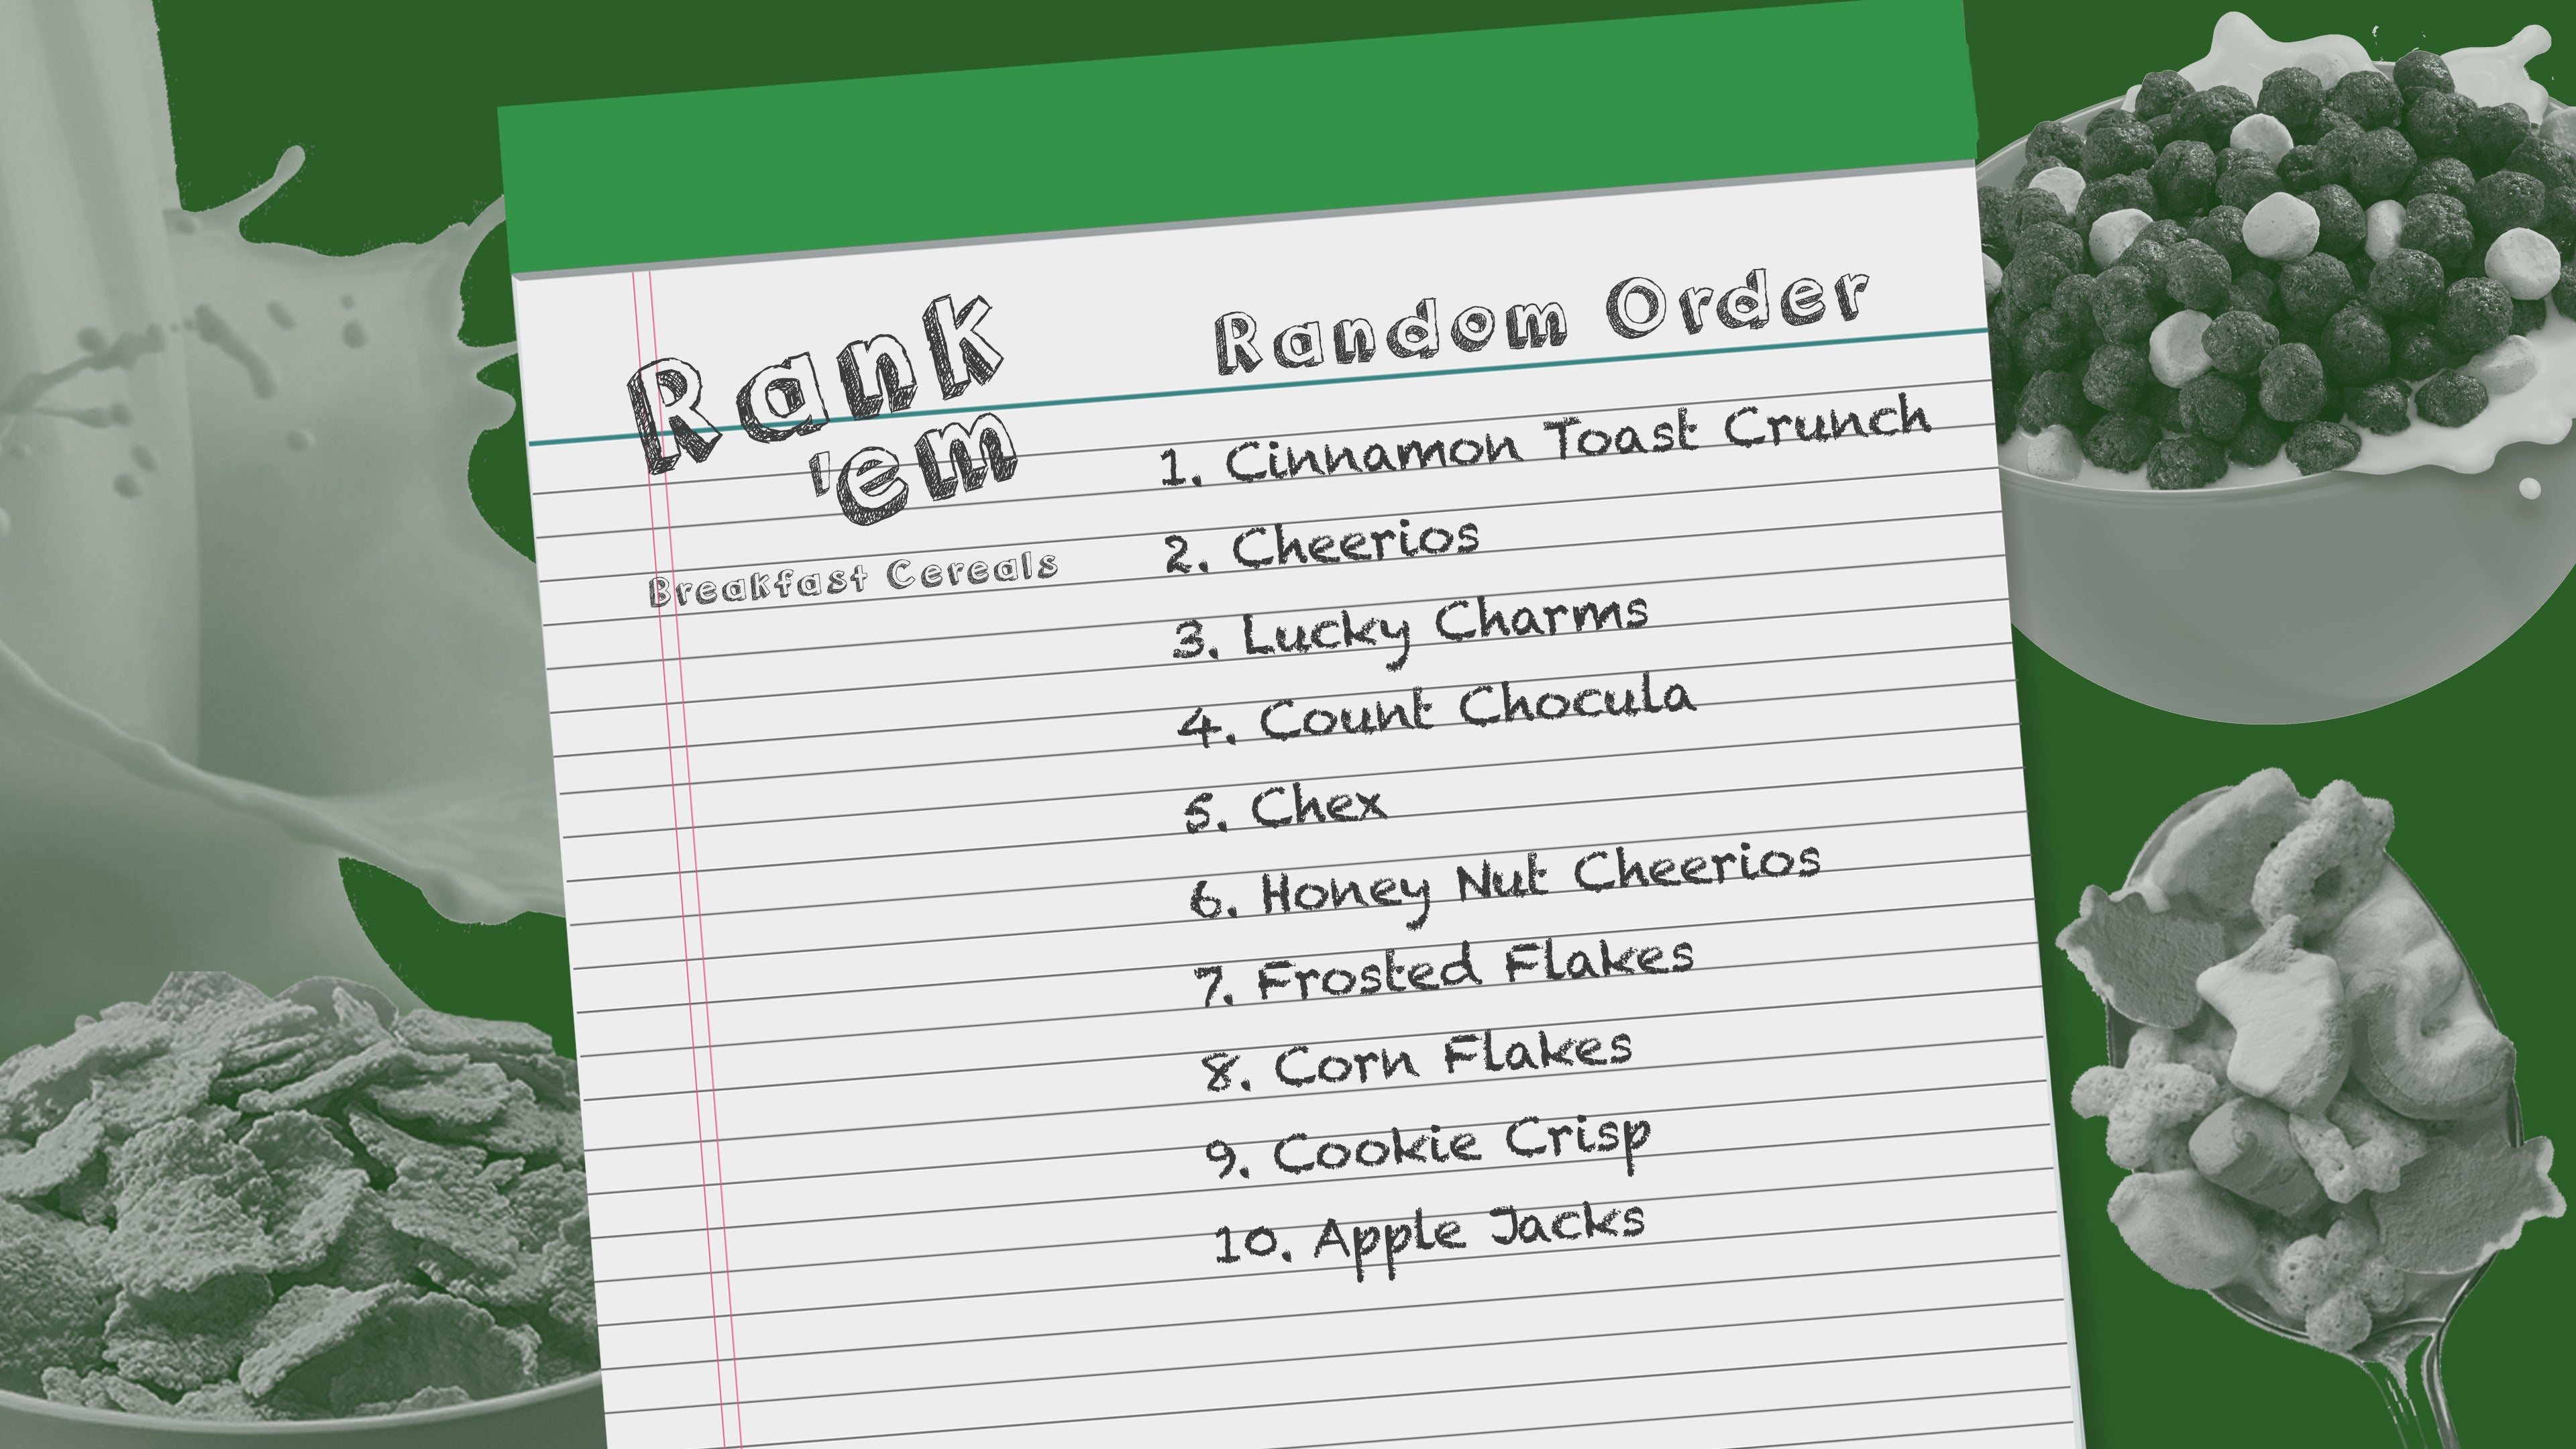 Rank
'em
Breakfast Cereals
Random Order
1. Cinnamon Toast Crunch
2. Cheerios
3. Lucky Charms
4. Count Chocula
5. Chex
6. Honey Nut Cheerios
7. Frosted Flakes
8. Corn Flakes
9. Cookie Crisp
10. Apple Jacks